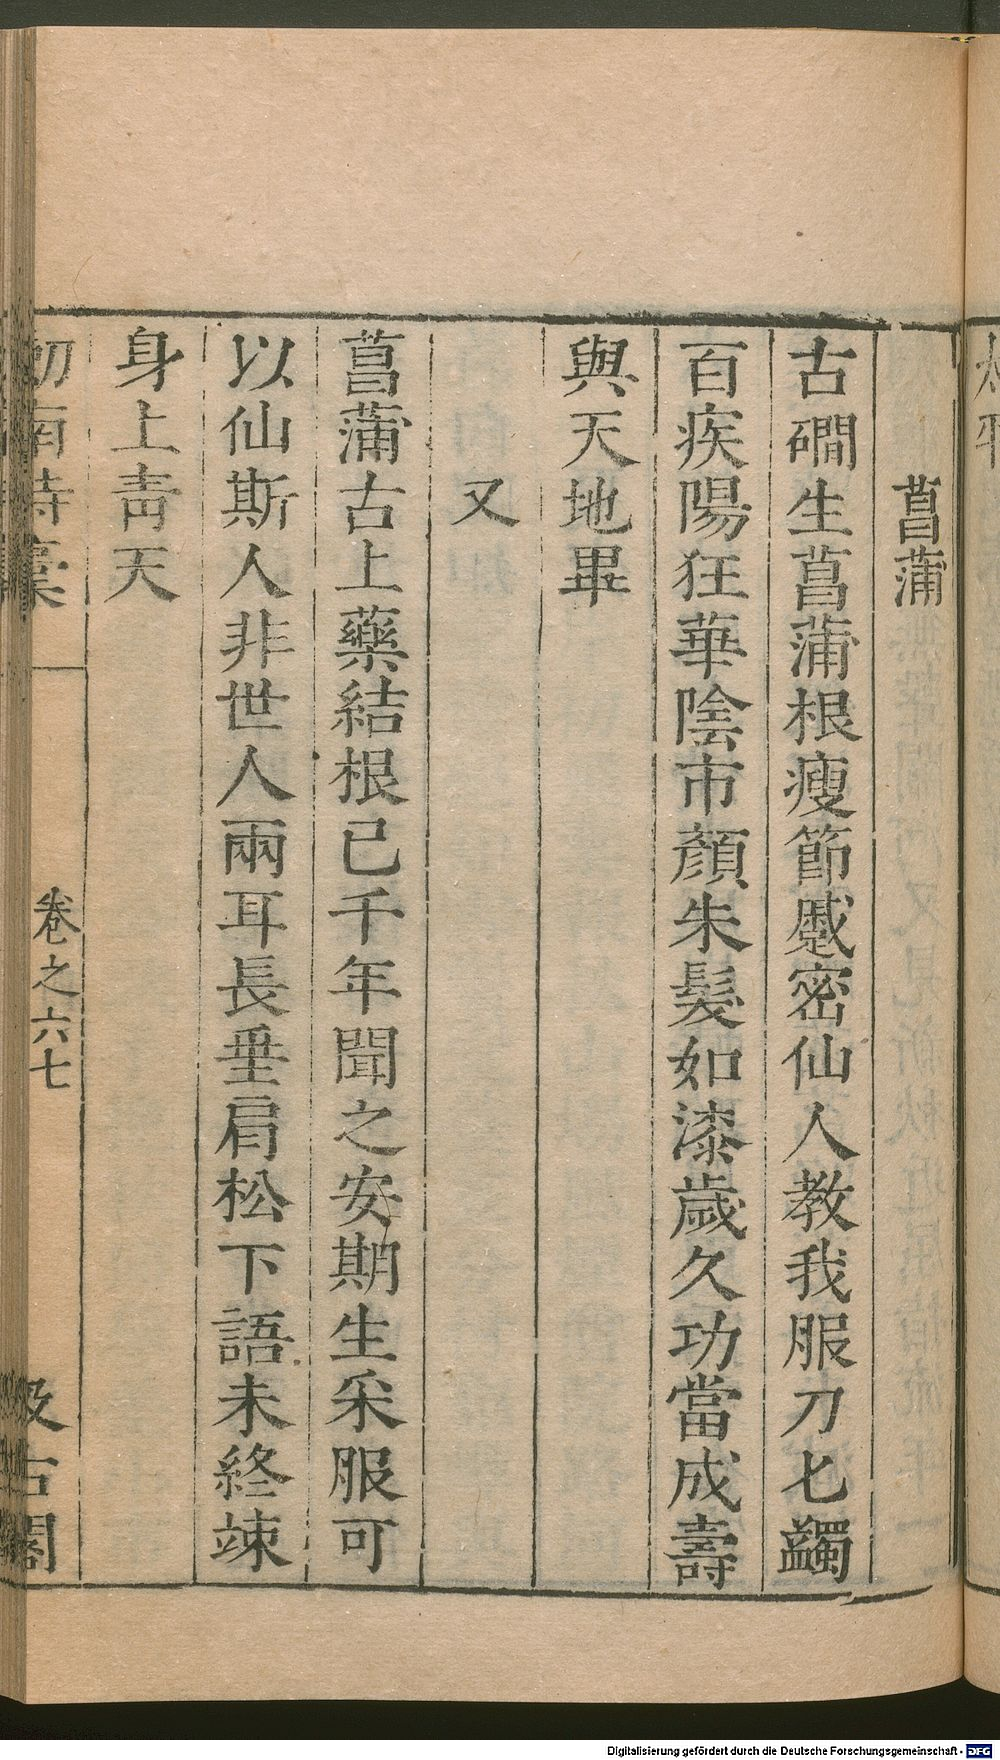 菖蒲
古磵生菖蒲根瘦節蹙密仙人教我服刀匕蠲
百疾陽狂華陰市顏朱髮如漆歲久功當成壽
與天地畢
又
菖蒲古上藥結根已千年聞之安期生采服可
以仙斯人非世人兩耳長垂肩松下語未終竦
身上青天
劒南詩稾
卷之六七
汲古閣
Digitalisierung gefördert durch die Deutsche Forschungsgemeinschaft - DFG